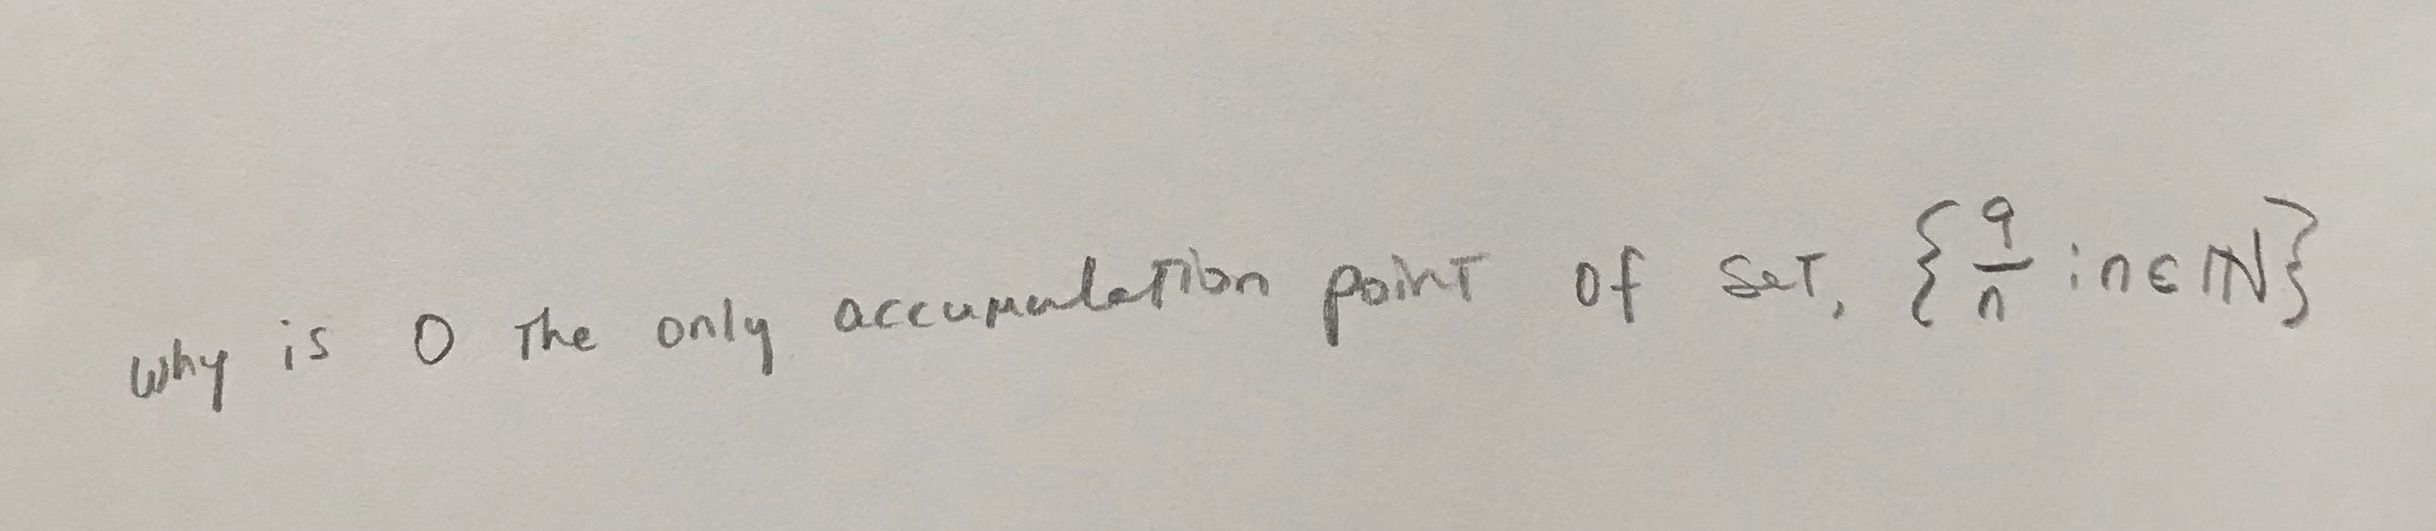 why is 0 The only accumulation point of set, {9/n : n ∈ ℕ}